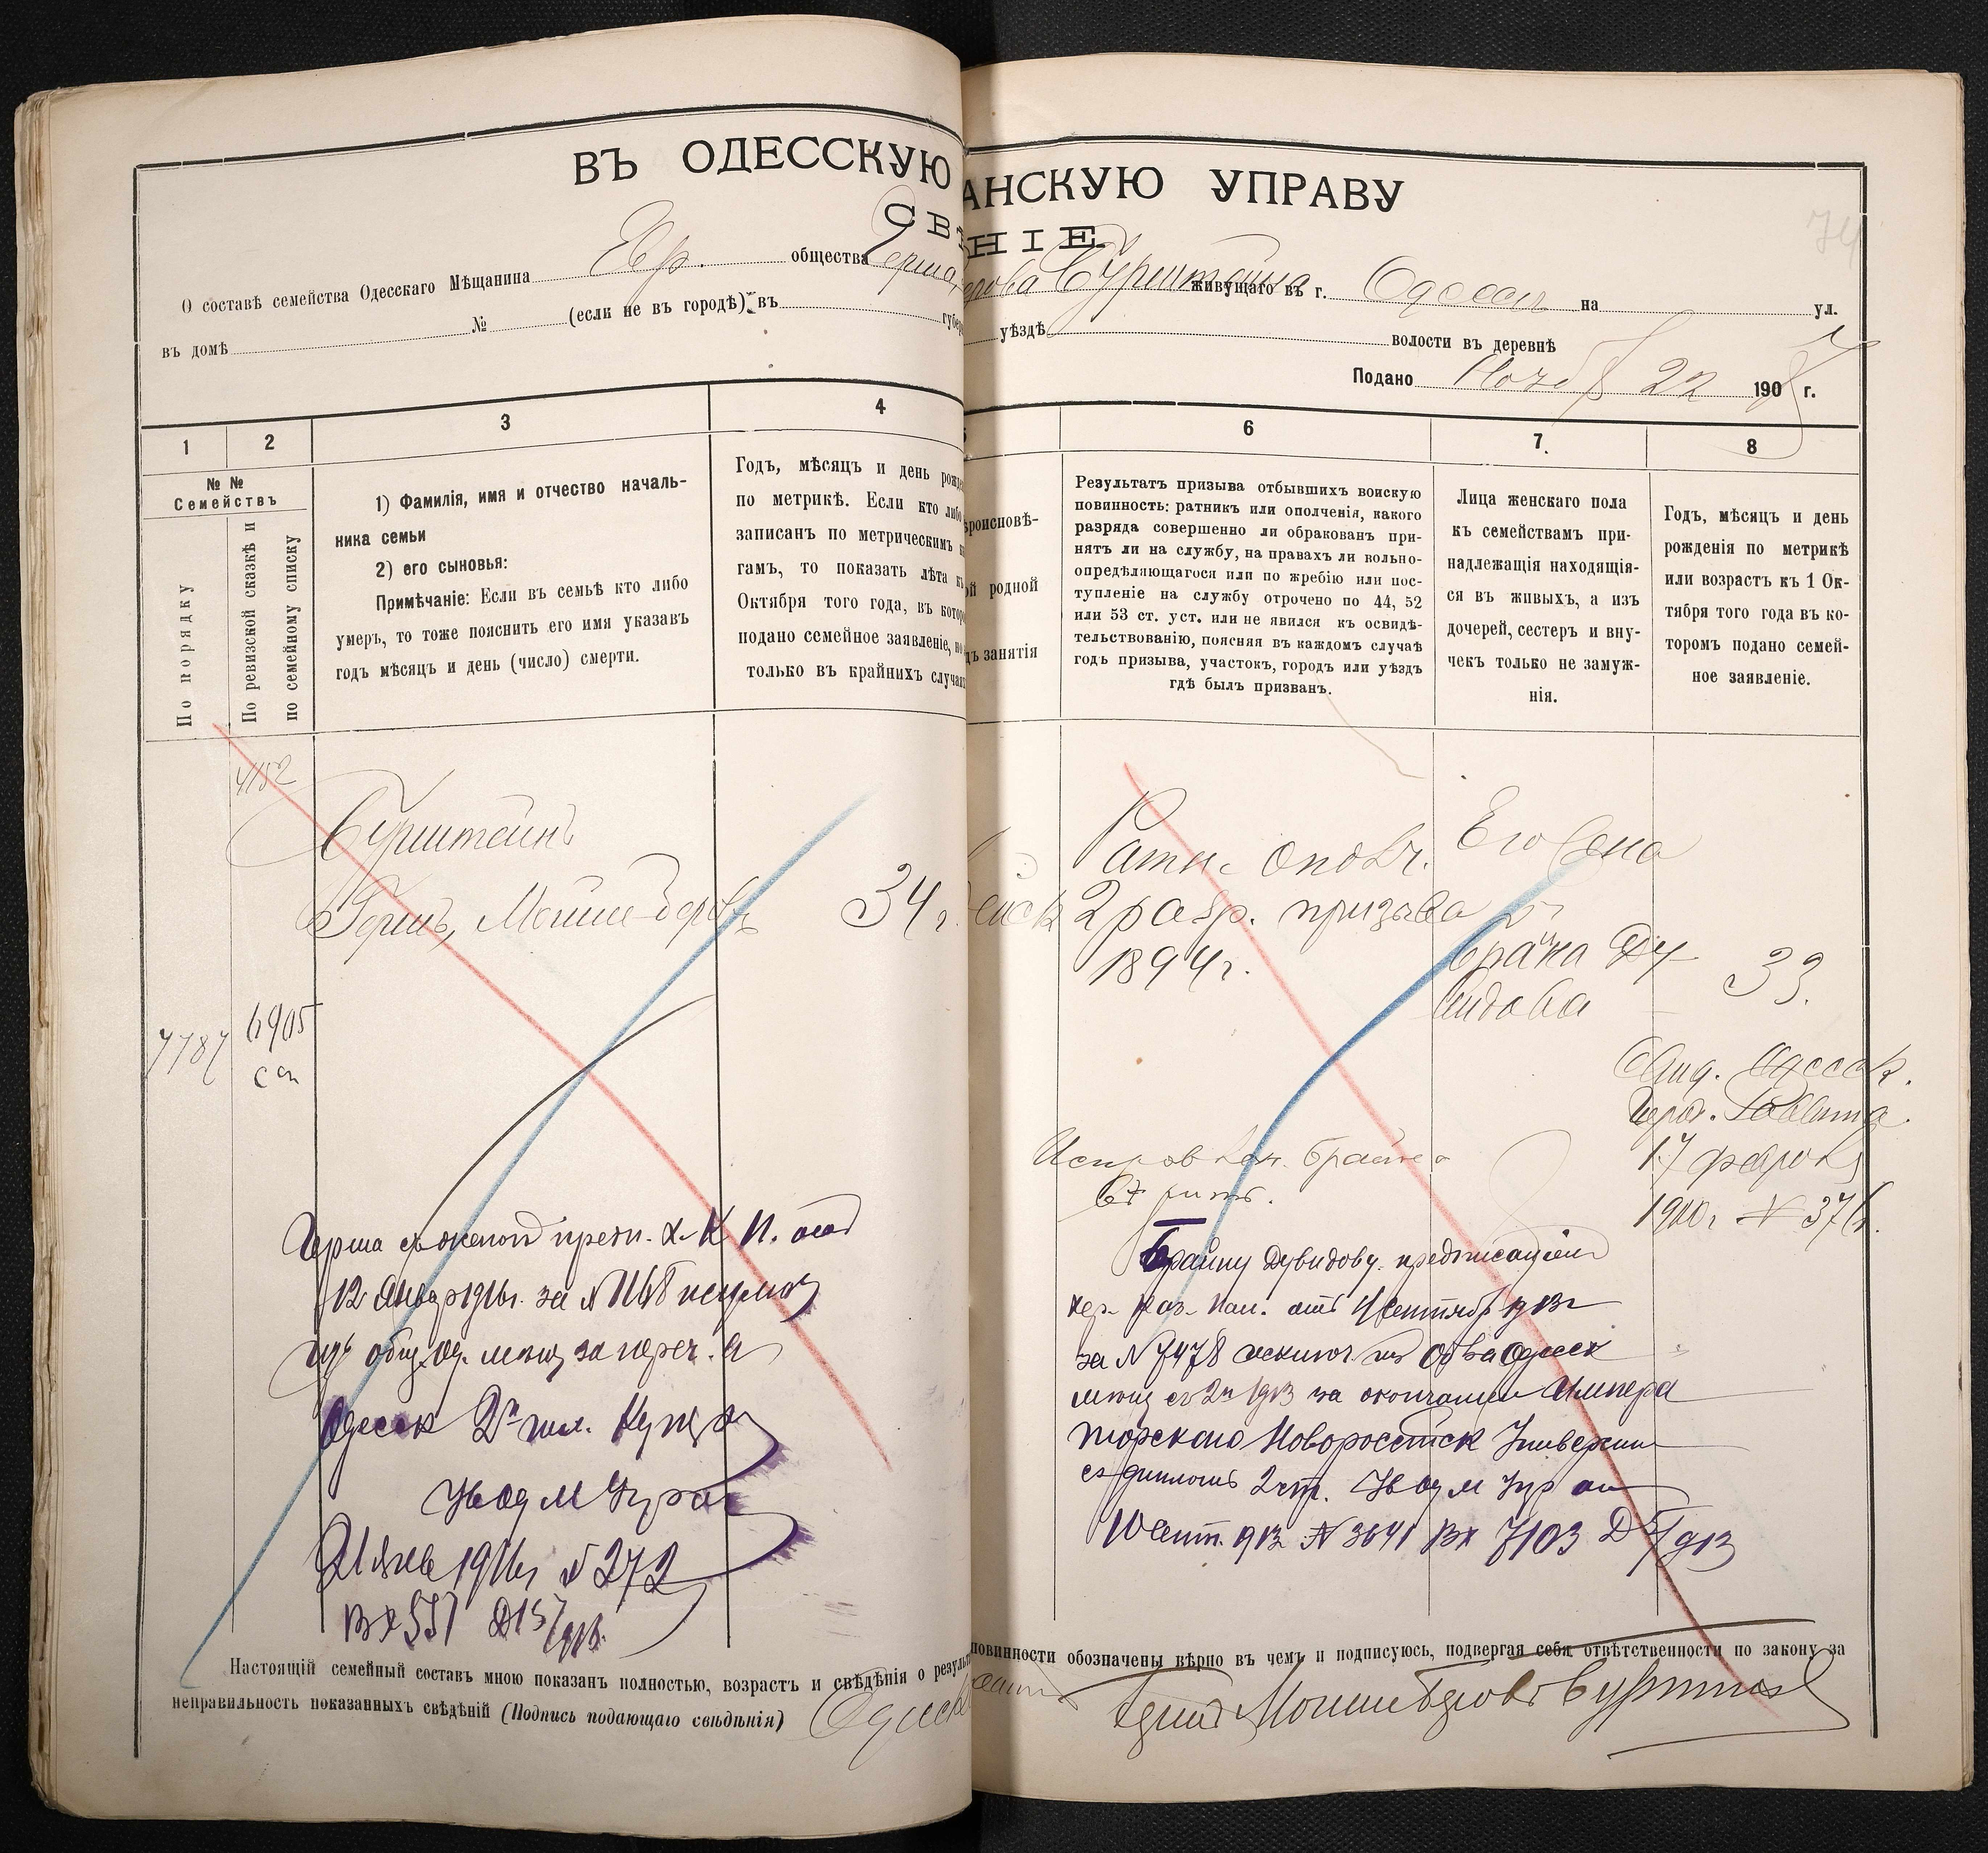 ВЪ ОДЕССКУЮ АНСКУЮ УПРАВУ
СВѢ НІЕ
О составѣ семейства Одесскаго Мѣщанина Евр. общества Герша, ерова Бурштейна живущаго въ г. Одессѣ на ул.
въ домѣ № (если не въ городѣ) въ губер уѣздѣ волости въ деревнѣ
Подано Ноября 22 190 г.
74
1 2 3 4 5 6 7. 8
№ №
Семействъ
По порядку
По ревизской сказкѣ и
по семейному списку
1) Фамилія, имя и отчество началь-
ника семьи
2) его сыновья:
Примѣчаніе: Если въ семьѣ кто либо
умеръ, то тоже пояснить его имя указавъ
годъ мѣсяцъ и день (число) смерти.
Годъ, мѣсяцъ и день рожде
по метрикѣ. Если кто либо
записанъ по метрическимъ к
гамъ, то показать лѣта къ
Октября того года, въ котор
подано семейное заявленіе, но
только въ крайнихъ случаях
ѣроисповѣ-
ой родной
дъ занятія
Результатъ призыва отбывшихъ воискую
повинность: ратникъ или ополченія, какого
разряда совершенно ли обракованъ при-
нятъ ли на службу, на правахъ ли вольно-
опредѣляющагося или по жребію или пос-
тупленіе на службу отрочено по 44, 52
или 53 ст. уст. или не явился къ освидѣ-
тельствованію, поясняя въ каждомъ случаѣ
годъ призыва, участокъ, городъ или уѣздъ
гдѣ былъ призванъ.
Лица женскаго пола
къ семействамъ при-
надлежащія находящія-
ся въ живыхъ, а изъ
дочерей, сестеръ и вну-
чекъ только не замуж-
нія.
Годъ, мѣсяцъ и день
рожденія по метрикѣ
или возрастъ къ 1 Ок-
тября того года въ ко-
торомъ подано семей-
ное заявленіе.
4152
Бурштейнъ
Гершъ, Мошке-Беровъ
34 г.
7787
6905
сп
Ратн. ополч.
2 разр. призыва
1894 г.
Его жена
Брана Ду-
видова
33.
Одесск.
Гор. Раввина
17 февр
1910 г № 376.
Исправлен. Брайна
Герша съ женою предп. Х. К. П. отъ
12 Января 1916 г. за № 1148 исключ
изъ общ. Од. мѣщ за переч. в
Одесск 2й гил. Купцы
Чл Од М Упра
21 Янв 1916 г № 272
Вх 557 Д 157/913.
Брайну Дувидову предписаніем
Хер. Каз. Пал. отъ 4 Сентября 1913 г
за № 7478 исключ. изъ Об ва Одесск
мѣщ съ 2 п 1913 за окончаніем Импера
торскаго Новороссійск Университ
съ дипломъ 2 ст. Чл Од М Упр
10 Сент. 1913 № 3641 Вх 7103
Настоящій семейный составъ мною показанъ полностью, возрастъ и свѣдѣнія о резуль повинности обозначены вѣрно въ чемъ и подписуюсь, подвергая себя отвѣтственности по закону за
неправильность показанныхъ свѣдѣній (Подпись подающаго свѣдѣнія) Одесскій Гершъ Мошке Беровъ Бурштейнъ